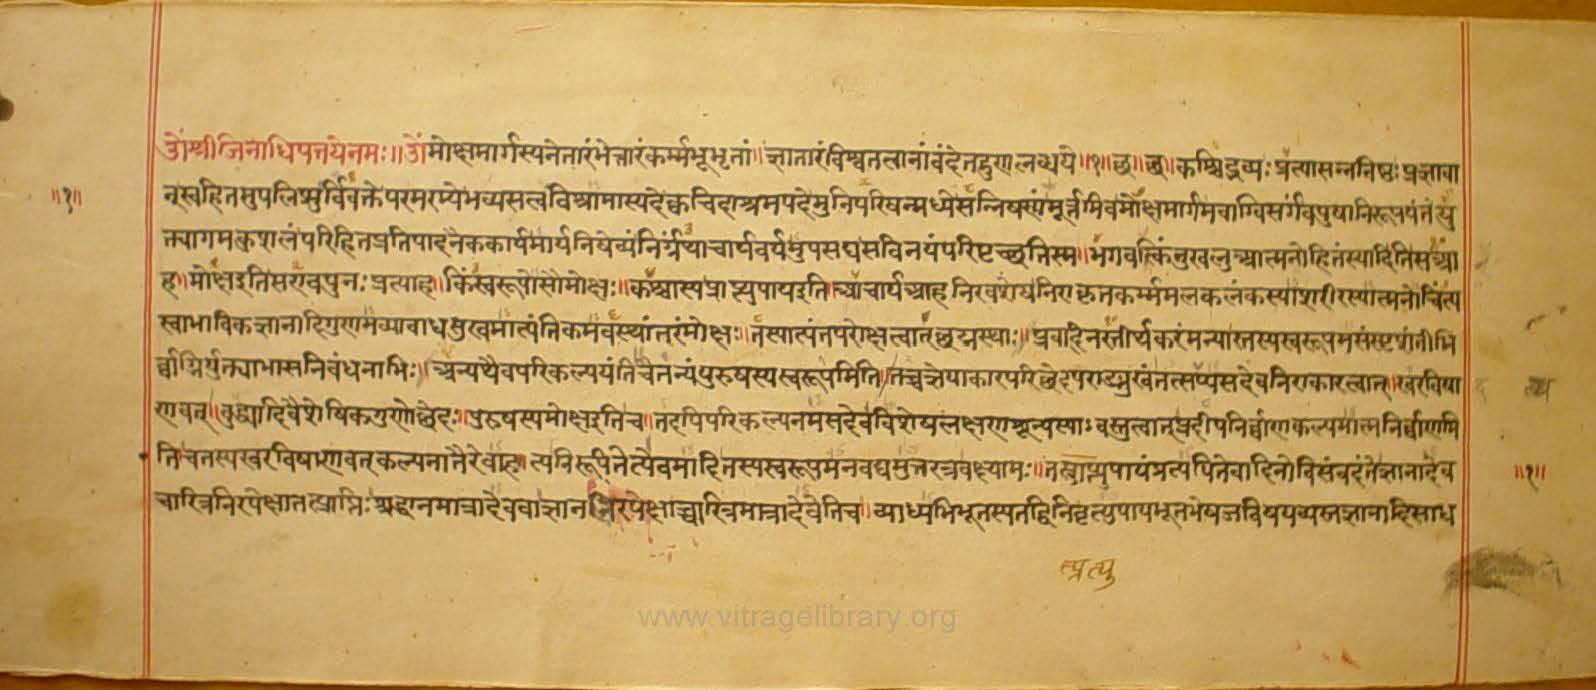 उोंश्रीजिनाधिपतयेनमः॥उों मोक्षमार्गस्यनेतारंभेत्तारंकर्म्मभूभृतां॥ज्ञातारंविश्वतत्वानांवंदेतद्गुणलब्धये॥१॥छ॥छ॥कश्चिद्भव्यः प्रत्यासन्ननिष्ठः प्रज्ञावा
॥१॥
न्स्वहितमुपलिप्सुर्विविक्तेपरमरम्येभव्यसत्वविश्रामास्पदेक्वचिदाश्रमपदेमुनिपरिषन्मध्येसन्निषण्णंमूर्त्तमिवमोक्षमार्गमवाग्विसर्गंवपुषानिरूपयंतंयु
त्त्यागमकुशलंपरहितप्रतिपादनैककार्यमार्यनिषेव्यंनिर्ग्रंथाचार्यवर्यमुपसद्यसविनयंपरिपृच्छतिस्म॥भगवन्किंनुखलुआत्मनोहितंस्यादितिसआ
ह॥मोक्षइतिसएवपुनः प्रत्याह॥किंस्वरूपोसौमोक्षः॥कश्चास्यप्राप्त्युपायइति॥आचार्यआहनिरवशेषनिराकृतकर्म्ममलकलंकस्याशरीरस्यात्मनोचिंत्य
स्वाभाविकज्ञानादिगुणमव्याबाधसुखमात्यंतिकमवस्थांतरंमोक्षः॥तस्यात्यंतपरोक्षत्वात्छद्मस्थाः॥प्रवादिनस्तीर्थकरंमन्यास्तस्यस्वरूपमसंस्पृशंतीभि
र्वाग्भिर्युक्त्याभासनिबंधनाभिः॥अन्यथैवपरिकल्पयंतिचैतन्यंपुरुषस्यस्वरूपमिति॥तच्चज्ञेयाकारपरिछेदपराङ्मुखंतत्सप्यसदेवनिराकारत्वात्॥खरविषा
णवत्॥बुद्ध्यादिवैशेषिकगुणोच्छेदः॥पुरुषस्यमोक्षइतिच॥तदपिपरिकल्पनमसदेवविशेषलक्षणशून्यस्याः वस्तुत्वात्प्रदीपनिर्वाणकल्पमात्मनिर्वाणमि
तिचतस्यखरविषाणवत्कल्पनातैरेवाह॥त्यनिरूपितेत्येवमादितस्यस्वरूपमनवद्यमुत्तरत्रवक्ष्यामः॥तत्प्राप्त्युपायंप्रत्यपितेवादिनोविसंवदंतेज्ञानादेव
॥१॥
चारित्रनिरपेक्षातत्प्राप्तिः श्रद्धानमात्रादेववाज्ञाननिरपेक्षाच्चारित्रमात्रादेवेतिच॥व्याध्यभिभूतस्यतद्विनिवृत्त्युपायभूतभेषजविषयव्यस्तज्ञानादिसाध
त्प्रत्यु
www.vitragelibrary.org